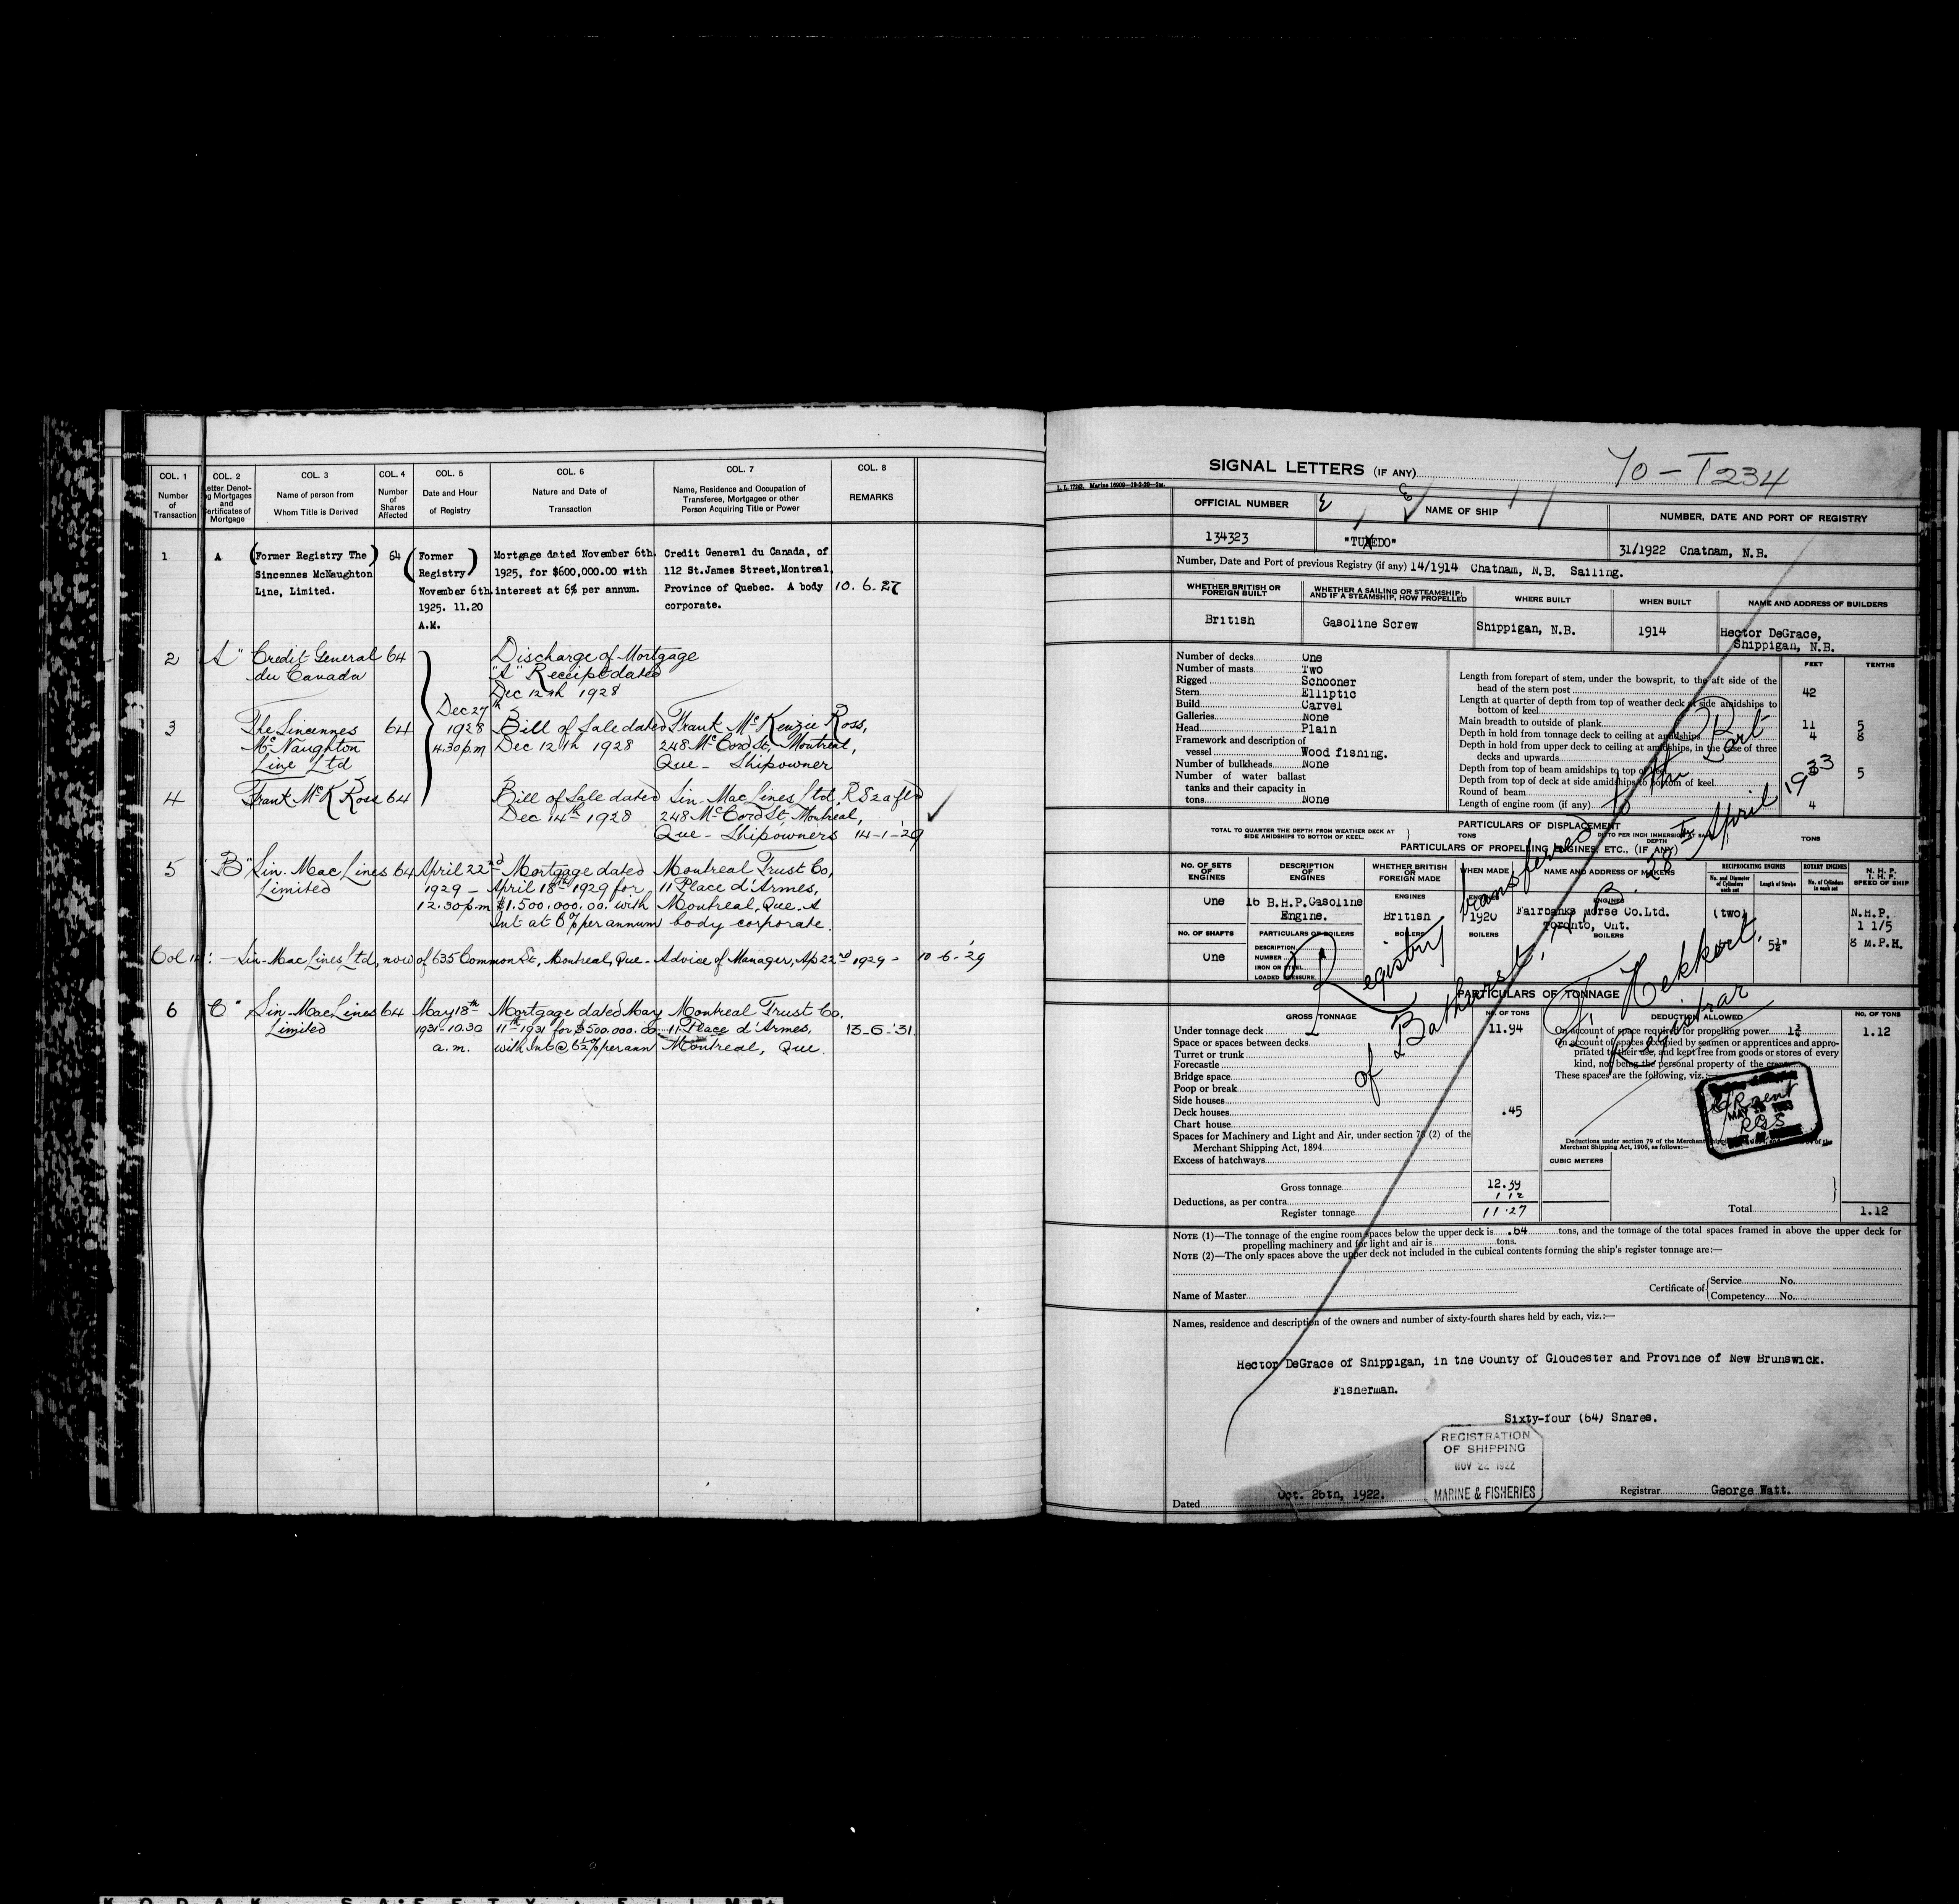 COL. 1 COL. 2 COL. 3 COL. 4 COL. 5 COL. 6 COL. 7 COL. 8
Number of Transaction
Letter Denoting Mortgages and Certificates of Mortgage
Name of person from Whom Title is Derived
Number of Shares Affected
Date and Hour of Registry
Nature and Date of Transaction
Name, Residence and Occupation of Transferee, Mortgagee or other Person Acquiring Title or Power
REMARKS
1 A (Former Registry The) 64 (Former Mortgage dated November 6th. Credit General du Canada, of
Sincennes McNaughton Registry) 1925, for $600,000.00 with 112 St.James Street,Montreal,
Line, Limited. November 6th. interest at 6% per annum. Province of Quebec. A body 10.6.27
1925. 11.20 corporate.
A.M.
2 "A" Credit General 64 Discharge of Mortgage
du Canada "A" Receipt dated
Dec 12th 1928
Dec 27th
3 The Sincennes 64 1928 Bill of Sale dated Frank McKenzie Ross,
McNaughton 4.30 p.m Dec 12th 1928 248 McCord St, Montreal,
Line Ltd Que - Shipowner
4 Frank McK Ross 64 Bill of Sale dated Sin-Mac Lines Ltd,
Dec 14th 1928 248 McCord St, Montreal,
Que - Shipowners 14-1-29
5 "B" Sin-Mac Lines 64 April 22nd Mortgage dated Montreal Trust Co,
Limited 1929 - April 18th 1929 for 11 Place d'Armes,
12.30 p.m $1.500.000.00. with Montreal, Que. A
Int at 6% per annum body corporate.
Sin-Mac Lines Ltd, now of 635 Common St., Montreal, Que - Advice of Manager, Ap 22nd 1929 - 10-6-29
6 "C" Sin-Mac Lines 64 May 18th Mortgage dated May Montreal Trust Co.
Limited 1931-10.30 11th 1931 for $500.000.00 11 Place d'Armes, 13-6-31.
a.m. with Int @ 6½% per ann Montreal, Que.
SIGNAL LETTERS (IF ANY) 70-T234
OFFICIAL NUMBER NAME OF SHIP NUMBER, DATE AND PORT OF REGISTRY
134323 "TUXEDO" 31/1922 Chatham, N.B.
Number, Date and Port of previous Registry (if any) 14/1914 Chatham, N.B. Sailing.
WHETHER BRITISH OR FOREIGN BUILT
WHETHER A SAILING OR STEAMSHIP; AND IF A STEAMSHIP, HOW PROPELLED
WHERE BUILT
WHEN BUILT
NAME AND ADDRESS OF BUILDERS
British Gasoline Screw Shippigan, N.B. 1914 Hector DeGrace,
Shippigan, N.B.
Number of decks One
Number of masts Two
Rigged Schooner
Stern Elliptic
Build Carvel
Galleries None
Head Plain
Framework and description of
vessel Wood fishing.
Number of bulkheads None
Number of water ballast
tanks and their capacity in
tons None
FEET TENTHS
Length from forepart of stem, under the bowsprit, to the aft side of the
head of the stern post 42
Length at quarter of depth from top of weather deck at side amidships to
bottom of keel
Main breadth to outside of plank 11 5
Depth in hold from tonnage deck to ceiling at amidships 4 8
Depth in hold from upper deck to ceiling at amidships, in the case of three
decks and upwards
Depth from top of beam amidships to top of keel 5
Depth from top of deck at side amidships to bottom of keel
Round of beam
Length of engine room (if any) 4
PARTICULARS OF DISPLACEMENT
TOTAL TO QUARTER THE DEPTH FROM WEATHER DECK AT SIDE AMIDSHIPS TO BOTTOM OF KEEL. TONS
TONS
PARTICULARS OF PROPELLING ENGINES, ETC., (IF ANY)
NO. OF SETS OF ENGINES
DESCRIPTION OF ENGINES
WHETHER BRITISH OR FOREIGN MADE
WHEN MADE
NAME AND ADDRESS OF MAKERS
RECIPROCATING ENGINES
No. and Diameter of Cylinders each set
Length of Stroke
ROTARY ENGINES
No. of Cylinders in each set
N. H. P.
I. H. P.
SPEED OF SHIP
One 16 B.H.P.Gasoline Engine. British 1920 Fairbanks Morse Co.Ltd. Toronto, Ont. (two) 5½" N.H.P.
1 1/5
8 M.P.H.
NO. OF SHAFTS PARTICULARS OF BOILERS BOILERS BOILERS BOILERS
One DESCRIPTION
NUMBER
IRON OR STEEL
LOADED PRESSURE
PARTICULARS OF TONNAGE
GROSS TONNAGE NO. OF TONS
Under tonnage deck 11.94
Space or spaces between decks
Turret or trunk
Forecastle
Bridge space
Poop or break
Side houses
Deck houses .45
Chart house
Spaces for Machinery and Light and Air, under section 78 (2) of the
Merchant Shipping Act, 1894
Excess of hatchways
Gross tonnage 12.39
Deductions, as per contra 1 12
Register tonnage 11.27
DEDUCTION ALLOWED NO. OF TONS
On account of space required for propelling power 1.12
On account of spaces occupied by seamen or apprentices and appro-
priated to their use, and kept free from goods or stores of every
kind, not being the personal property of the crew
These spaces are the following, viz.:
Deductions under section 79 of the Merchant
Merchant Shipping Act, 1906, as follows:—
CUBIC METERS
Total 1.12
Registry transferred to the Port
of Bathurst, N.B. 28th April 1933
Registrar
NOTE (1)—The tonnage of the engine room spaces below the upper deck is .64 tons, and the tonnage of the total spaces framed in above the upper deck for
propelling machinery and for light and air is tons.
NOTE (2)—The only spaces above the upper deck not included in the cubical contents forming the ship's register tonnage are:—
Name of Master Certificate of Service No.
Competency No.
Names, residence and description of the owners and number of sixty-fourth shares held by each, viz.:—
Hector DeGrace of Shippigan, in the County of Gloucester and Province of New Brunswick.
Fisherman.
Sixty-four (64) Shares.
REGISTRATION
OF SHIPPING
NOV 22 1922
MARINE & FISHERIES
Dated Oct. 26th, 1922. Registrar George Watt.